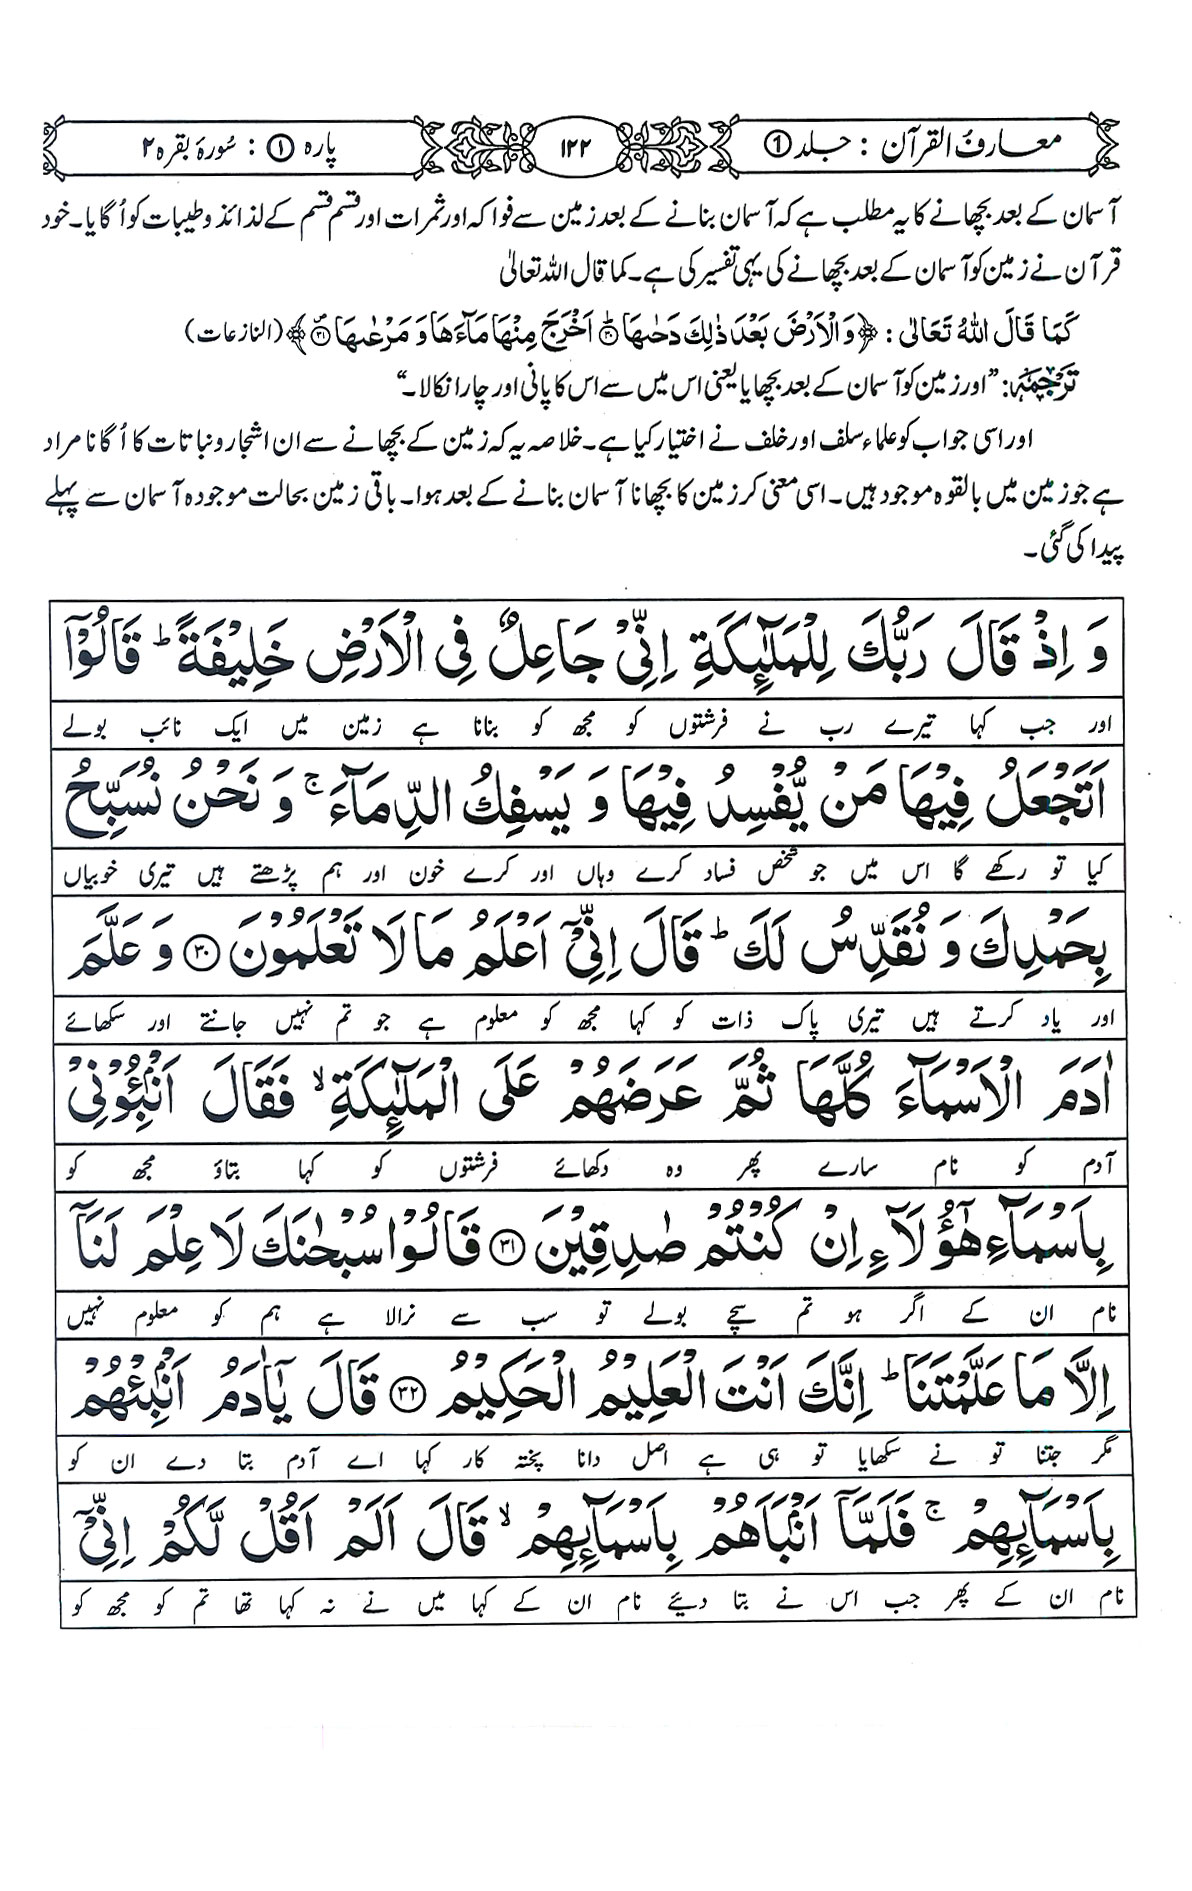 معارف القرآن : جلد ①
۱۲۲
پارہ ① : سُورۂ بقرہ ۲
آسمان کے بعد بچھانے کا یہ مطلب ہے کہ آسمان بنانے کے بعد زمین سے فواکہ اور ثمرات اور قسم قسم کے لذائذ و طیبات کو اُگایا۔ خود
قرآن نے زمین کو آسمان کے بعد بچھانے کی یہی تفسیر کی ہے۔ کما قال اللہ تعالیٰ
کَمَا قَالَ اللّٰہُ تَعَالٰی : ﴿وَالْاَرْضَ بَعْدَ ذٰلِكَ دَحٰىهَا ؕ۳۰ اَخْرَجَ مِنْهَا مَآءَهَا وَ مَرْعٰىهَا ۳۱﴾ (النازعات)
تَرْجَمَہ: ”اور زمین کو آسمان کے بعد بچھایا یعنی اس میں سے اس کا پانی اور چارا نکالا۔“
اور اسی جواب کو علماء سلف اور خلف نے اختیار کیا ہے۔ خلاصہ یہ کہ زمین کے بچھانے سے ان اشجار و نباتات کا اُگانا مراد
ہے جو زمین میں بالقوہ موجود ہیں۔ اسی معنی کر زمین کا بچھانا آسمان بنانے کے بعد ہوا۔ باقی زمین بحالت موجودہ آسمان سے پہلے
پیدا کی گئی۔
وَ اِذْ قَالَ رَبُّكَ لِلْمَلٰٓئِكَةِ اِنِّیْ جَاعِلٌ فِی الْاَرْضِ خَلِیْفَةً ؕ قَالُوْۤا
اور جب کہا تیرے رب نے فرشتوں کو مجھ کو بنانا ہے زمین میں ایک نائب بولے
اَتَجْعَلُ فِیْهَا مَنْ یُّفْسِدُ فِیْهَا وَ یَسْفِكُ الدِّمَآءَ ۚ وَ نَحْنُ نُسَبِّحُ
کیا تو رکھے گا اس میں جو شخص فساد کرے وہاں اور کرے خون اور ہم پڑھتے ہیں تیری خوبیاں
بِحَمْدِكَ وَ نُقَدِّسُ لَكَ ؕ قَالَ اِنِّیْۤ اَعْلَمُ مَا لَا تَعْلَمُوْنَ ۳۰ وَ عَلَّمَ
اور یاد کرتے ہیں تیری پاک ذات کو کہا مجھ کو معلوم ہے جو تم نہیں جانتے اور سکھائے
اٰدَمَ الْاَسْمَآءَ كُلَّهَا ثُمَّ عَرَضَهُمْ عَلَی الْمَلٰٓئِكَةِ ۙ فَقَالَ اَنْۢبِـُٔوْنِیْ
آدم کو نام سارے پھر وہ دکھائے فرشتوں کو کہا بتاؤ مجھ کو
بِاَسْمَآءِ هٰۤؤُلَآءِ اِنْ كُنْتُمْ صٰدِقِیْنَ ۳۱ قَالُوْا سُبْحٰنَكَ لَا عِلْمَ لَنَاۤ
نام ان کے اگر ہو تم سچے بولے تو سب سے نرالا ہے ہم کو معلوم نہیں
اِلَّا مَا عَلَّمْتَنَا ؕ اِنَّكَ اَنْتَ الْعَلِیْمُ الْحَكِیْمُ ۳۲ قَالَ یٰۤاٰدَمُ اَنْۢبِئْهُمْ
مگر جتنا تو نے سکھایا تو ہی ہے اصل دانا پختہ کار کہا اے آدم بتا دے ان کو
بِاَسْمَآىِٕهِمْ ۚ فَلَمَّاۤ اَنْۢبَاَهُمْ بِاَسْمَآىِٕهِمْ ۙ قَالَ اَلَمْ اَقُلْ لَّكُمْ اِنِّیْۤ
نام ان کے پھر جب اس نے بتا دیئے نام ان کے کہا میں نے نہ کہا تھا تم کو مجھ کو